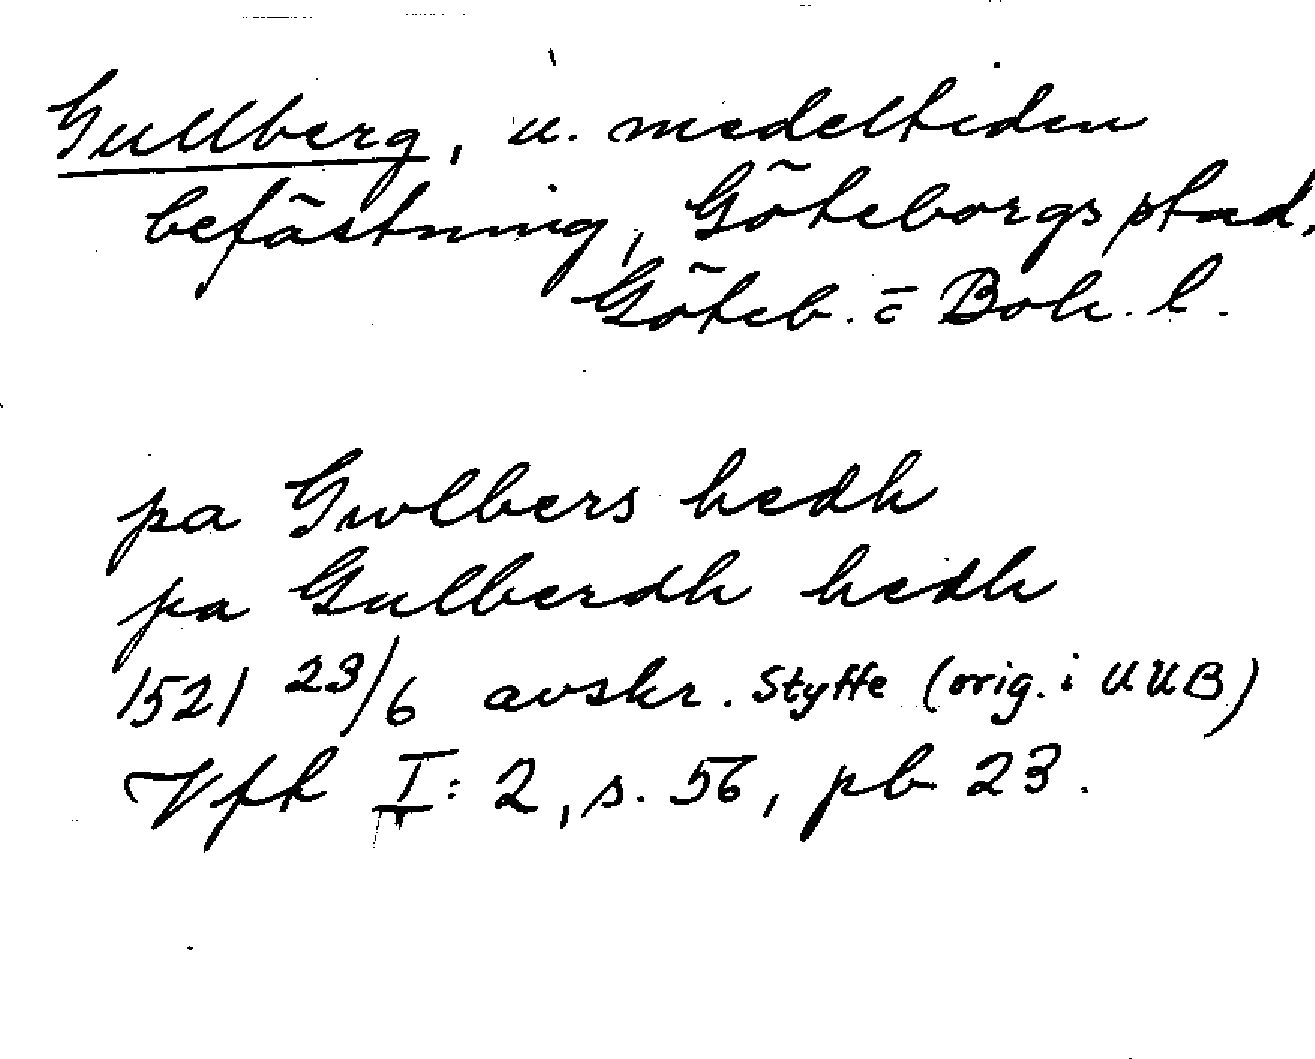 Gullberg, u. medeltiden
befästning, Göteborgs stad,
Göteb. o Boh. l.
pa Gwlbers hedh
pa Gulberdh hedh
1521 23/6 avskr. Styffe (orig. i UUB)
Vfh I: 2, s. 56, pb 23.